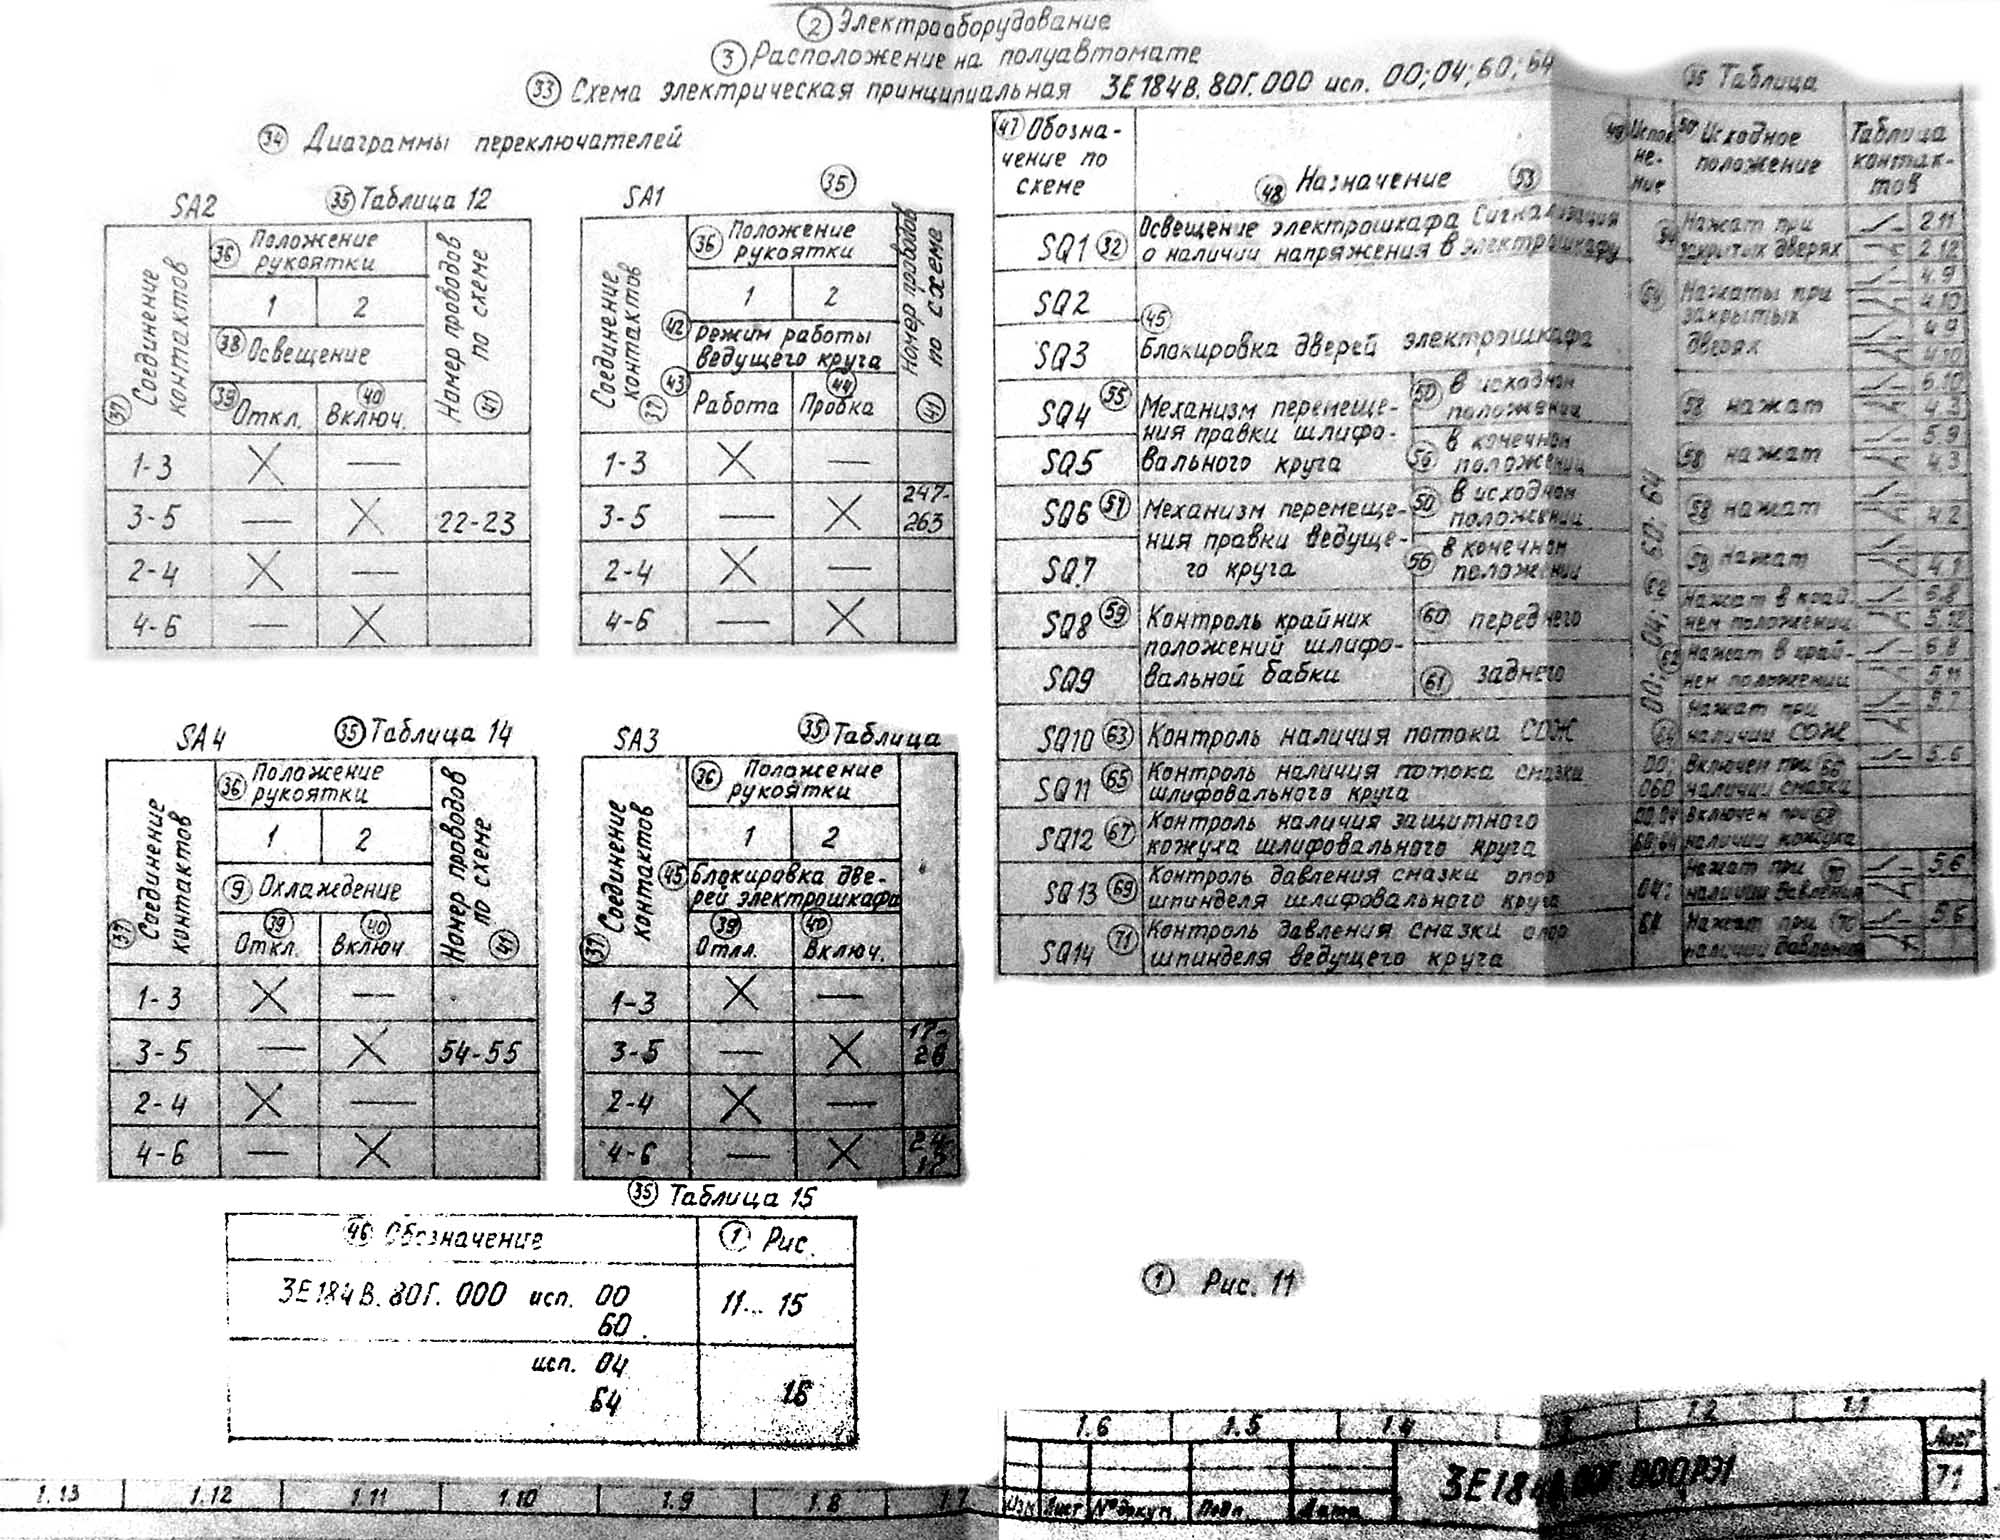 2 Электрооборудование
3 Расположение на полуавтомате
33 Схема электрическая принципиальная 3Е184В.80Г.000 исп. 00;04;60;64
34 Диаграммы переключателей
SA2 35 Таблица 12
37 Соединение контактов
36 Положение рукоятки
1 2
38 Освещение
39 Откл. 40 Включ.
Номер проводов по схеме 41
1-3 X —
3-5 — X 22-23
2-4 X —
4-6 — X
SA1 35
Соединение контактов 37
36 Положение рукоятки
1 2
42 Режим работы
ведущего круга
43 Работа 44 Пробка
Номер проводов по схеме 41
1-3 X —
3-5 — X 247-
263
2-4 X —
4-6 — X
SA4 35 Таблица 14
37 Соединение контактов
36 Положение рукоятки
1 2
9 Охлаждение
39 Откл. 40 Включ.
Номер проводов по схеме 41
1-3 X —
3-5 — X 54-55
2-4 X —
4-6 — X
SA3 35 Таблица
37 Соединение контактов
36 Положение рукоятки
1 2
45 Блокировка две-
рей электрошкафа
39 Откл. 40 Включ.
1-3 X —
3-5 — X 17-
2-4 X —
4-6 — X
35 Таблица 15
46 Обозначение 1 Рис.
3Е184В.80Г.000 исп. 00 11... 15
60
исп. 04
64 16
35 Таблица
47 Обозна-
чение по
схеме
48 Назначение 53
49 Испол-
не-
ние
50 Исходное
положение
Таблица
контак-
тов
SQ1 32 Освещение электрошкафа Сигнализация
о наличии напряжения в электрошкафу
54 Нажат при
закрытых дверях
2.11
2.12
SQ2
SQ3
45
Блокировка дверей электрошкафа
54 Нажаты при
закрытых
дверях
4.9
4.10
4.9
4.10
SQ4 55 Механизм перемеще-
ния правки шлифо-
вального круга
50 в исходном
положении
58 нажат
6.10
4.3
SQ5 56 в конечном
положении
58 нажат
5.9
4.3
SQ6 57 Механизм перемеще-
ния правки ведуще-
го круга
50 в исходном
положении
58 нажат
4.2
SQ7 56 в конечном
положении
58 нажат
4.1
00; 04; 60; 64
SQ8 59 Контроль крайних
положений шлифо-
вальной бабки
60 переднего
62 Нажат в край-
нем положении
6.8
5.12
SQ9 61 заднего
62 Нажат в край-
нем положении
6.8
5.11
SQ10 63 Контроль наличия потока СОЖ
64 Нажат при
наличии СОЖ
5.7
SQ11 65 Контроль наличия потока смазки
шлифовального круга
00;
060
Включен при 66
наличии смазки
5.6
SQ12 67 Контроль наличия защитного
кожуха шлифовального круга
00,04
60,64
Включен при 68
наличии кожуха
SQ13 69 Контроль давления смазки опор
шпинделя шлифовального круга
04;
Нажат при 70
наличии давления
5.6
SQ14 71 Контроль давления смазки опор
шпинделя ведущего круга
64
Нажат при 70
наличии давления
5.6
1 Рис. 11
1.6 1.5 1.4 1.2 1.1
Изм Лист №докум. Подп. Дата
3Е184В.80Г.000РЭ1
Лист
71
1.13 1.12 1.11 1.10 1.9 1.8 1.7